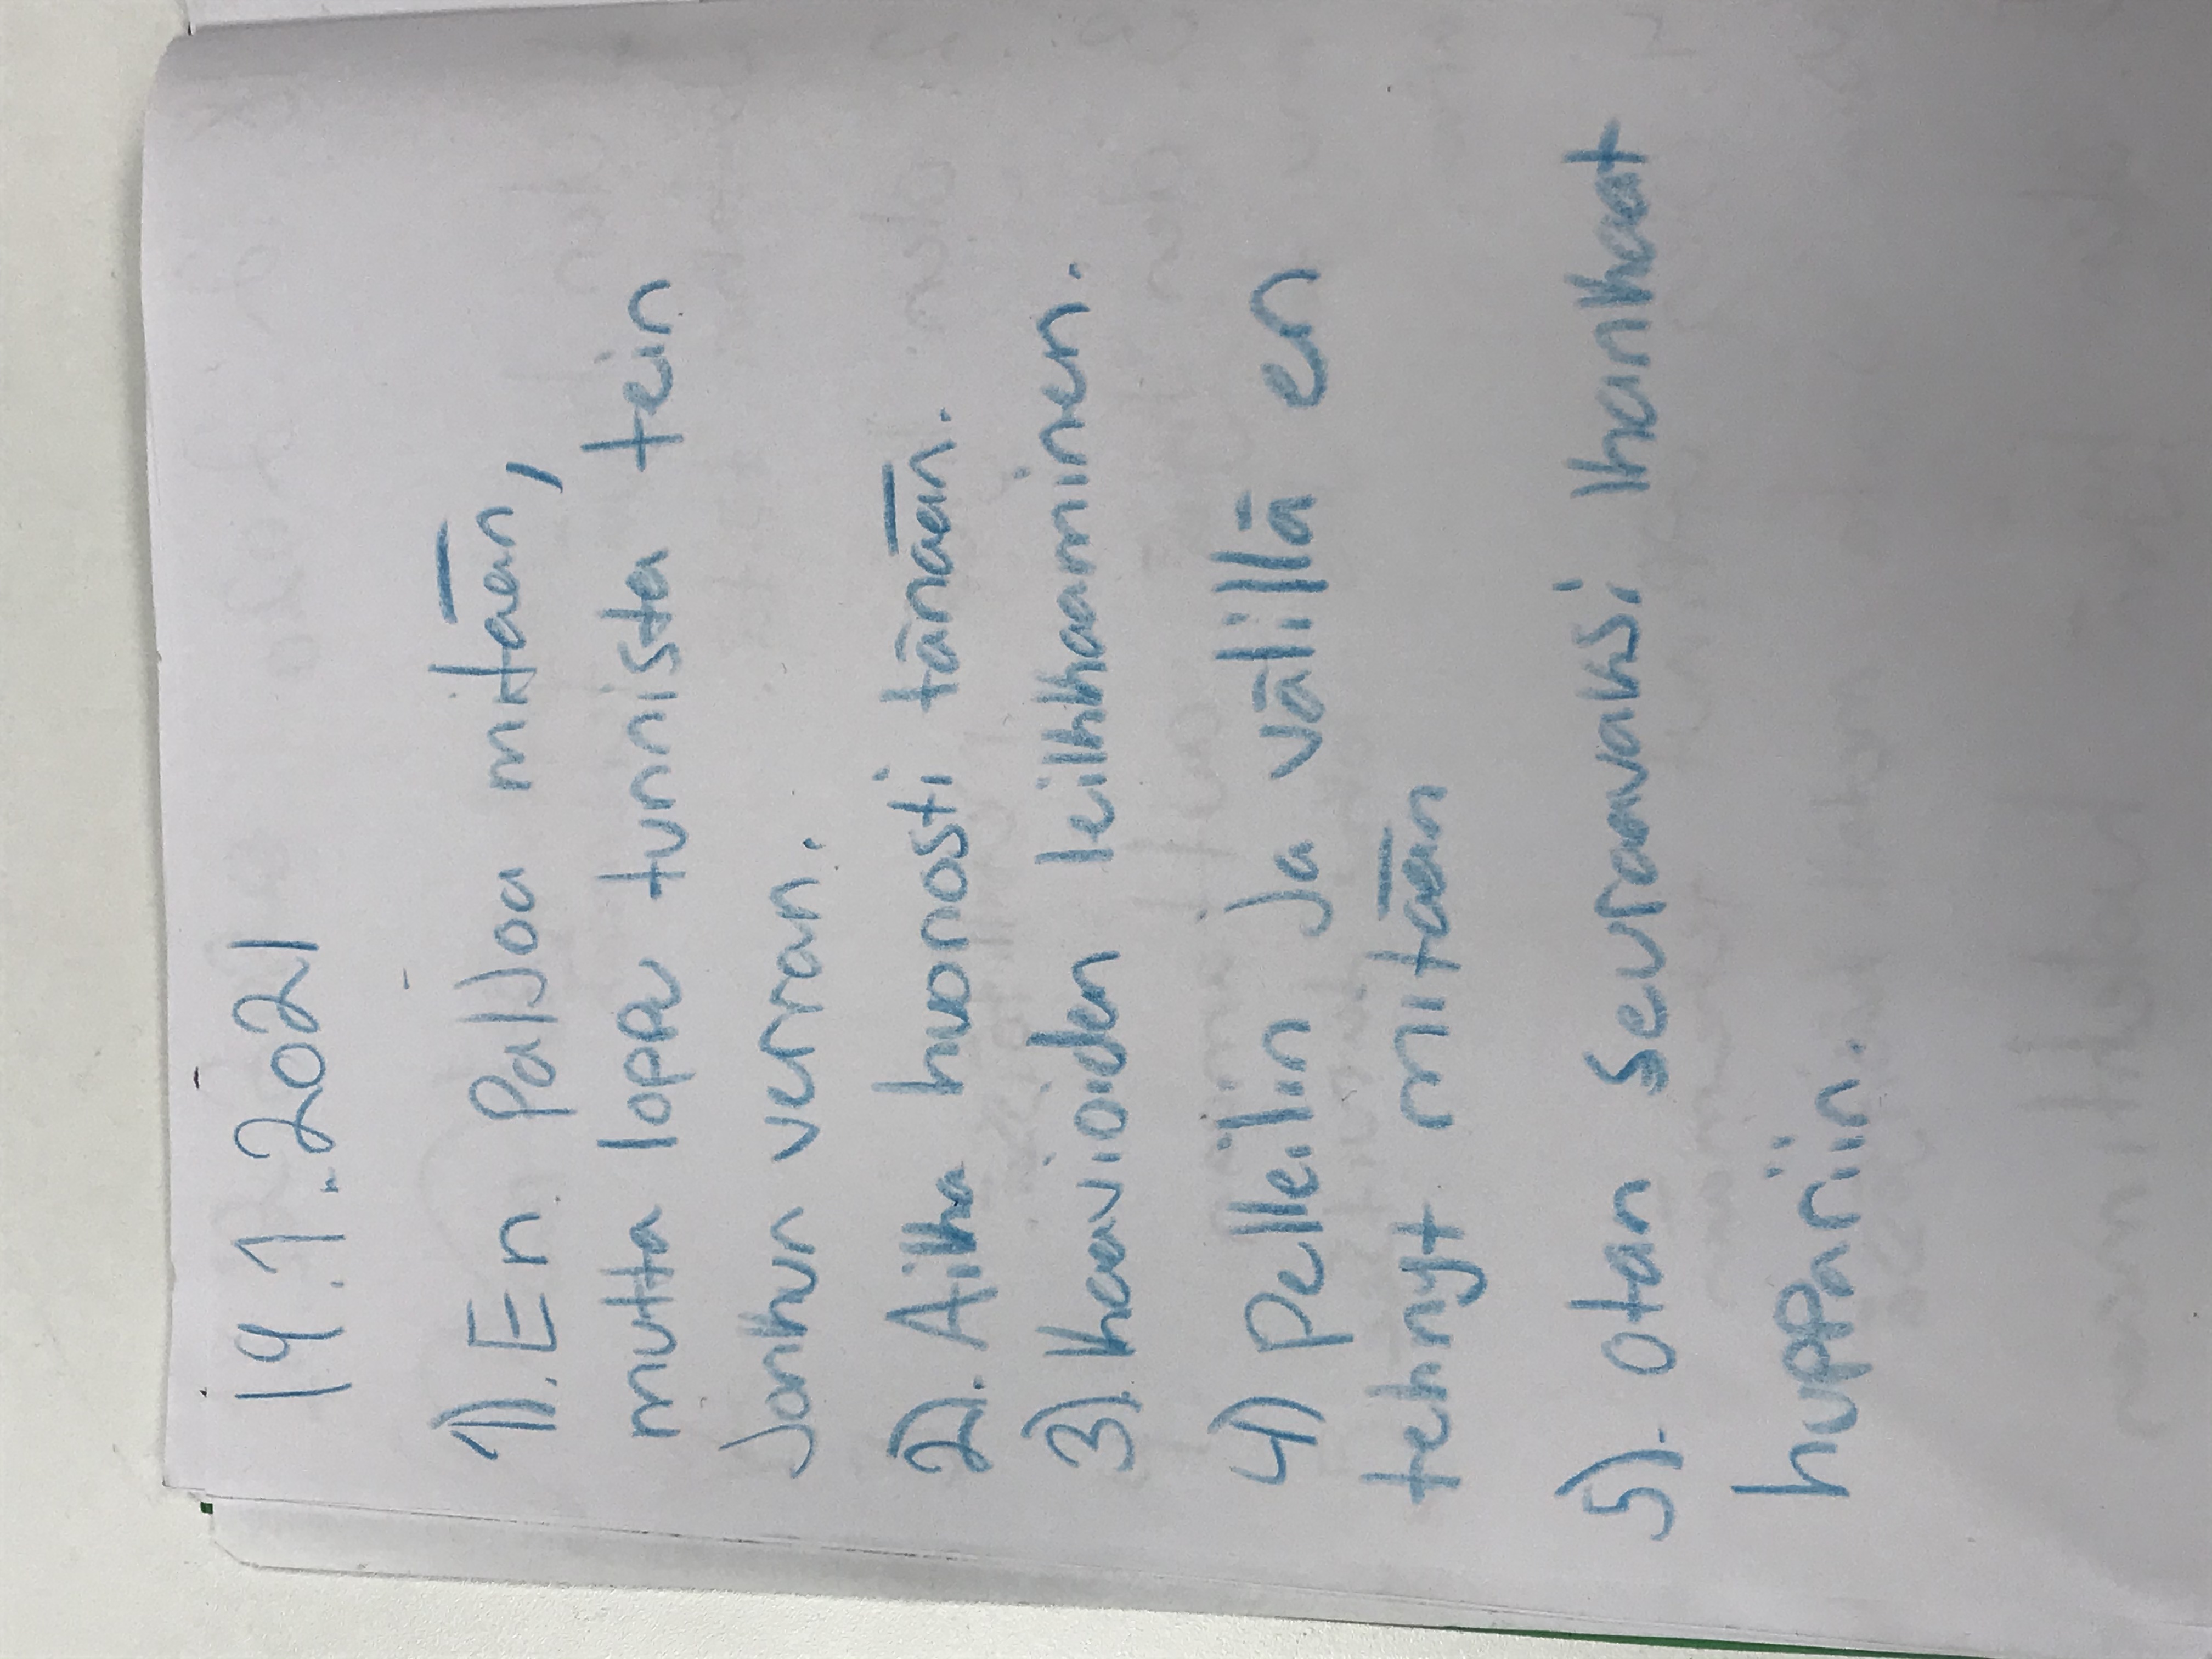 19.1.2021
1). En paljoa mitään,
mutta loppu tunnista tein
Jonkun verran.
2). Aika huonosti tänään.
3). kaavioiden leikkaaminen.
4) Pelleilin Ja välillä en
tehnyt mitään
5). otan seuraavaksi kankaat
huppariin.